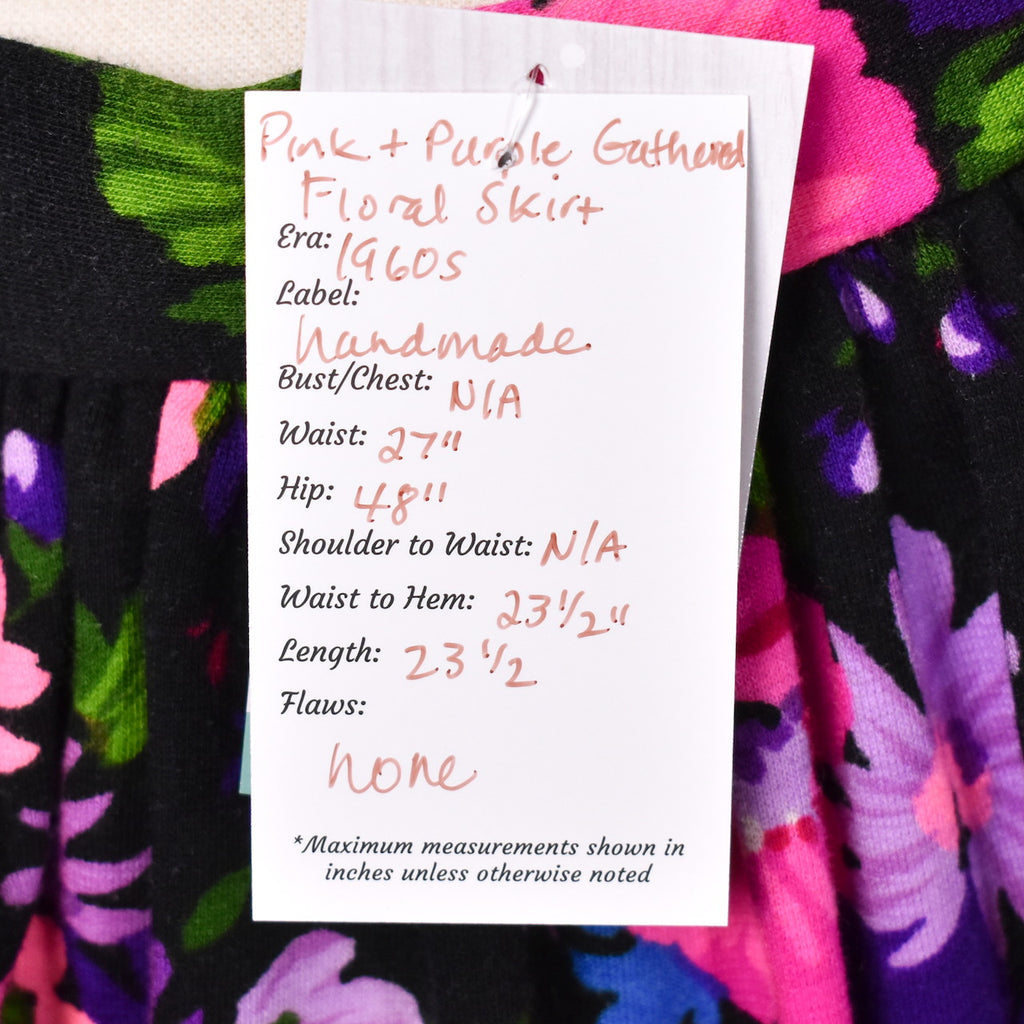 Pink + Purple Gathered
Floral Skirt
Era: 1960s
Label:
handmade
Bust/Chest: N/A
Waist: 27"
Hip: 48"
Shoulder to Waist: N/A
Waist to Hem: 23 1/2"
Length: 23 1/2
Flaws:
none
*Maximum measurements shown in
inches unless otherwise noted